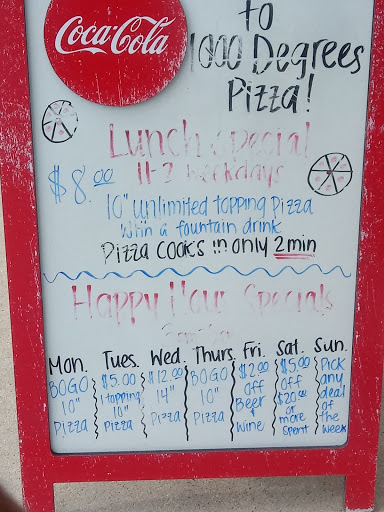 Coca-Cola
to
1000 Degrees
Pizza!
Lunch special
11-2 weekdays
$8.00
10" unlimited topping Pizza
with a fountain drink
Pizza cooks in only 2min
Happy Hour Specials
Mon. Tues. Wed. Thurs. Fri. Sat. Sun.
BOGO
10"
Pizza
$5.00
1 topping
10"
Pizza
$12.00
14"
Pizza
BOGO
10"
Pizza
$2.00
off
Beer
&
wine
$5.00
off
$20.00
or
more
spent
Pick
any
deal
of
the
week